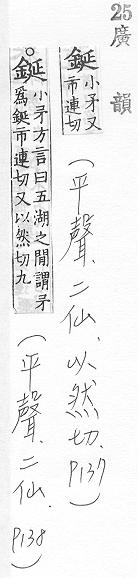 25 廣韻
鋋 小矛又
市連切
(平聲、二仙、以然切、P137)
○鋋 小矛方言曰五湖之閒謂矛
爲鋋市連切又以然切九
(平聲、二仙、P138)